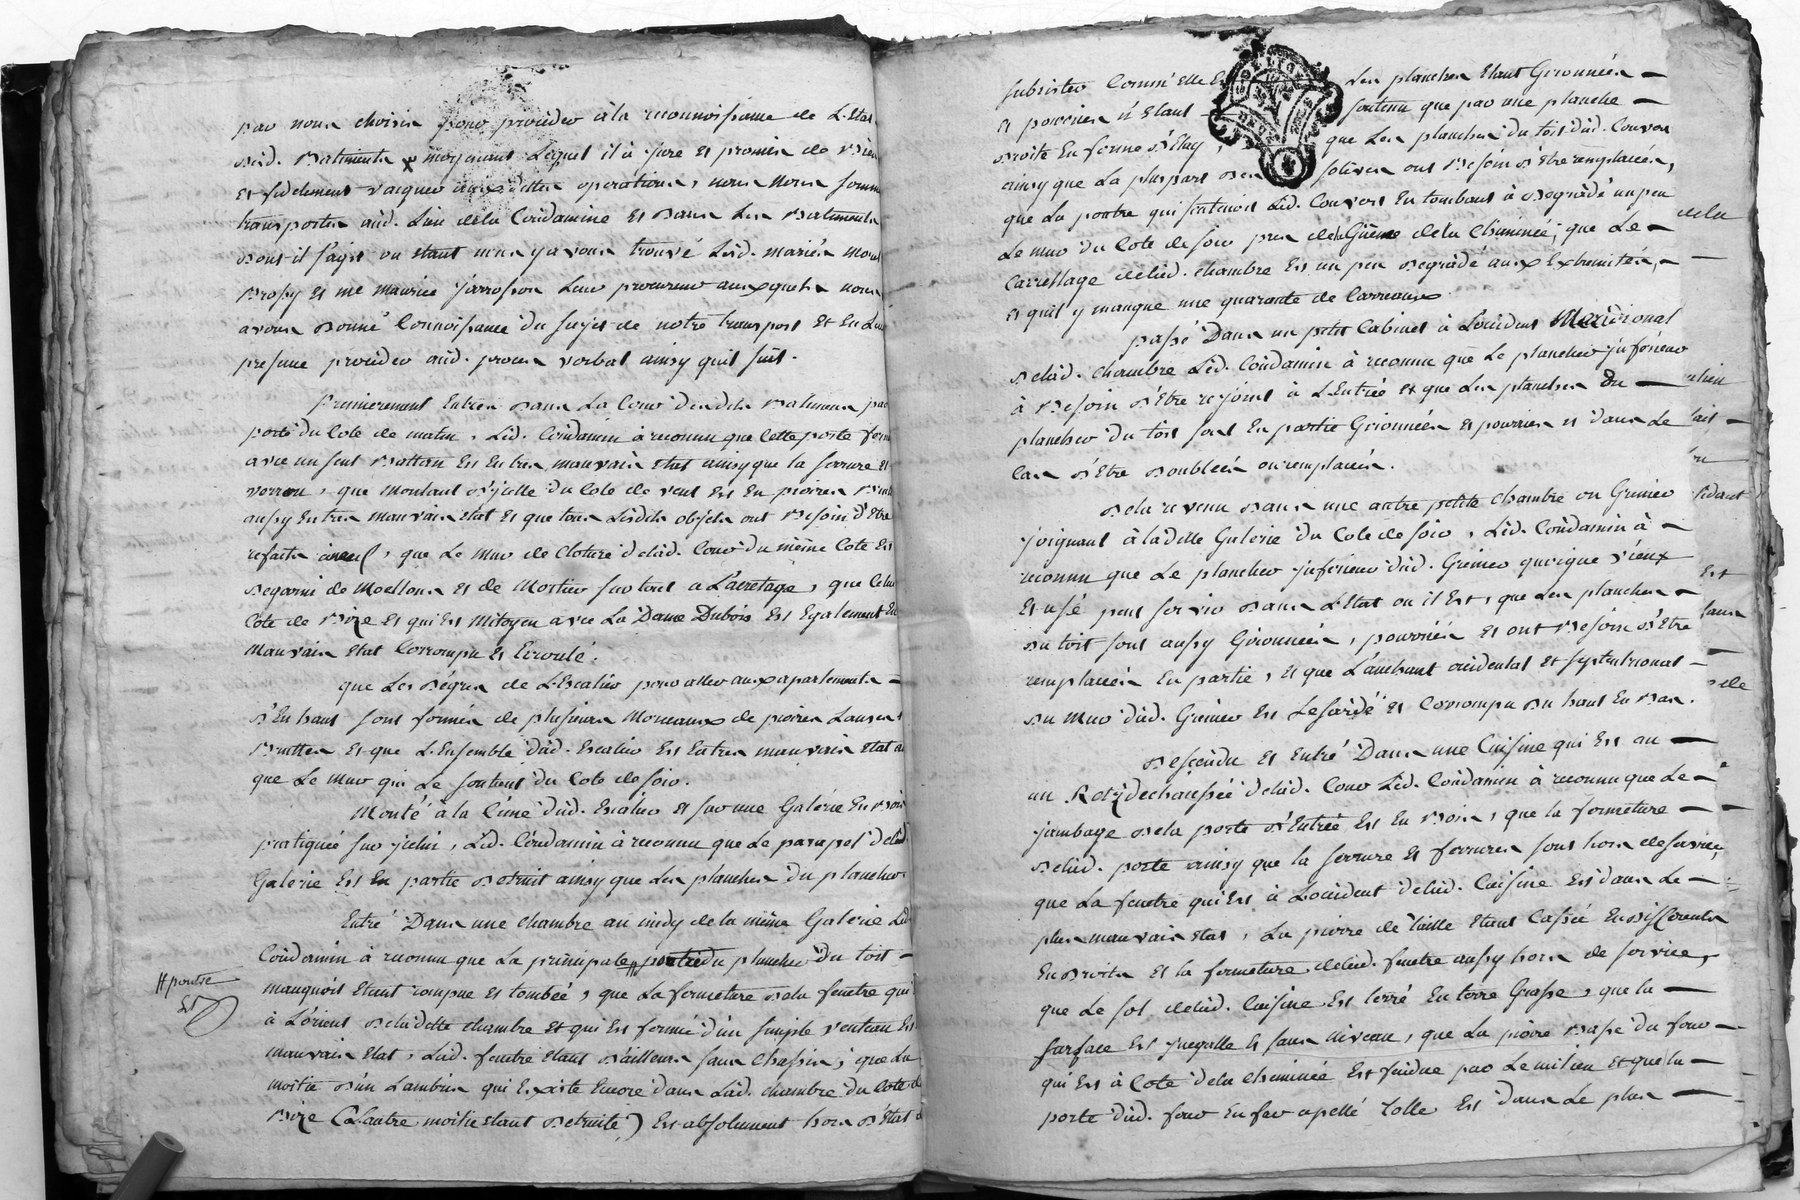 par nous choisis pour procéder à la reconnoissance de L'Etat
desd. Batiments x moyenant Lequel il à juré et promis de Bien
et fidelement vaquer auxdittes operations, nous nous sommes
transportés aud. Lieu dela Condamine et dans Les Batiments
dont il s'agit ou étant nous y avons trouvé Lesd. mariés
Brossy et me maurice jarrosson Leur procureur auxquels nous
avons donné Connoissance du sujet de notre transport et en Leur
presence procéder aud. procès verbal ainsy quil suit.
Premierement Entrés dans La Cour desdits Batiments par
porte du Coté de matin, Led. Condamin à reconnu que Cette porte
avec un seul Battan Est En tres mauvais état ainsy que la serrure et
verrou, que montant d'jcelle du Coté de vent Est En pierres
aussy En tres mauvais état et que tous Lesdits objets ont Besoin d'être
refaits à neuf, que Le mur de Cloture delad. Cour du même Coté Est
Degarni de Moellons et de Mortier sur tout a L'arretage, que Celui
Coté de Bize et qui Est Mitoyen avec La Dame Dubois Est Egalement En
Mauvais etat Corrompu et Ecroulé.
que Les dégrés de L'Escalier pour aller aux apartements
d'En haut sont formés de plusieurs Morceaux de pierres
Bruttes et que L'Ensemble dud. Escalier Est En tres mauvais état
que Le mur qui Le soutient du Coté de soir.
Monté à la Cime dud. Escalier et sur une Galerie En Bois
pratiquée sur jcelui, Led. Condamin à reconnu que Le parapet delad.
Galerie Est En partie Detruit ainsy que Les planches du plancher.
Entré Dans une Chambre au midy de la même Galerie Led.
Condamin à reconnu que La principale # poutre du plancher du toit
manquoit étant rompue et tombée, que La fermeture dela fenetre qui
à L'orient deladitte Chambre et qui Est fermée d'un simple venteau Est
mauvais Etat, Lad. fenetre étant d'ailleurs sans Chassis; que La
moitié d'un Lambris qui Existe Encore dans Lad. Chambre du Coté de
Bize (L'autre moitié étant Detruite) Est absolument hors d'Etat de
# poutre
subsister Comm'elle Est Les planches étant Gironnées
et pourries n'étant soutenu que par une planche
Droite En forme d'Etay, que Les planches du toit dud. Couvert
ainsy que La plus part des solives ont Besoin d'être remplacées,
que La poutre qui soutenoit Led. Couvert En tombant à Degradé un peu
Le mur du Coté de soir pres dela Gueule dela Cheminée; que Le
Carrellage delad. chambre Est un peu Degradé aux Extremités,
et quil y manque une quarante de Carreaux.
passé Dans un petit Cabinet à Loccident Meridional
Delad. Chambre Led. Condamin à reconnu que Le plancher jnferieur
à Besoin d'être rejoint à L'Entrée et que Les planches du
plancher du toit sont En partie Gironnées et pourries et dans Le
Cas d'être doublées ou remplacées.
Dela revenu Dans une autre petite Chambre ou Grenier
joignant à ladite Galerie du Coté de soir, Led. Condamin à
reconnu que Le plancher jnferieur dud. Grenier quoique vieux
et usé peut servir Dans L'Etat ou il Est, que Les planches
du toit sont aussy Gironnées, pourriées et ont Besoin d'être
remplacées En partie, et que L'anchant occidental et septentrional
du mur dud. Grenier Est Lesardé et Corrompu du haut En Bas.
Descendu et Entré Dans une Cuisine qui Est au
un Rez dechaussée delad. Cour Led. Condamin à reconnu que Le
jambage dela porte d'Entrée Est En Bois, que la fermeture
delad. porte ainsy que la serrure et ferrures sont hors de service,
que La fenetre qui Est à Loccident delad. Cuisine Est dans Le
plus mauvais etat, La pierre de taille étant Cassée En differents
Endroits et la fermeture delad. fenetre aussy hors de service,
que Le sol delad. Cuisine Est terré En terre Grasse, que la
surface Est jnegalle et sans niveau, que La pierre Basse du four
qui Est à Coté dela Cheminée Est fendue par Le milieu et que la
porte dud. four En fer apellé tolle Est dans Le plus